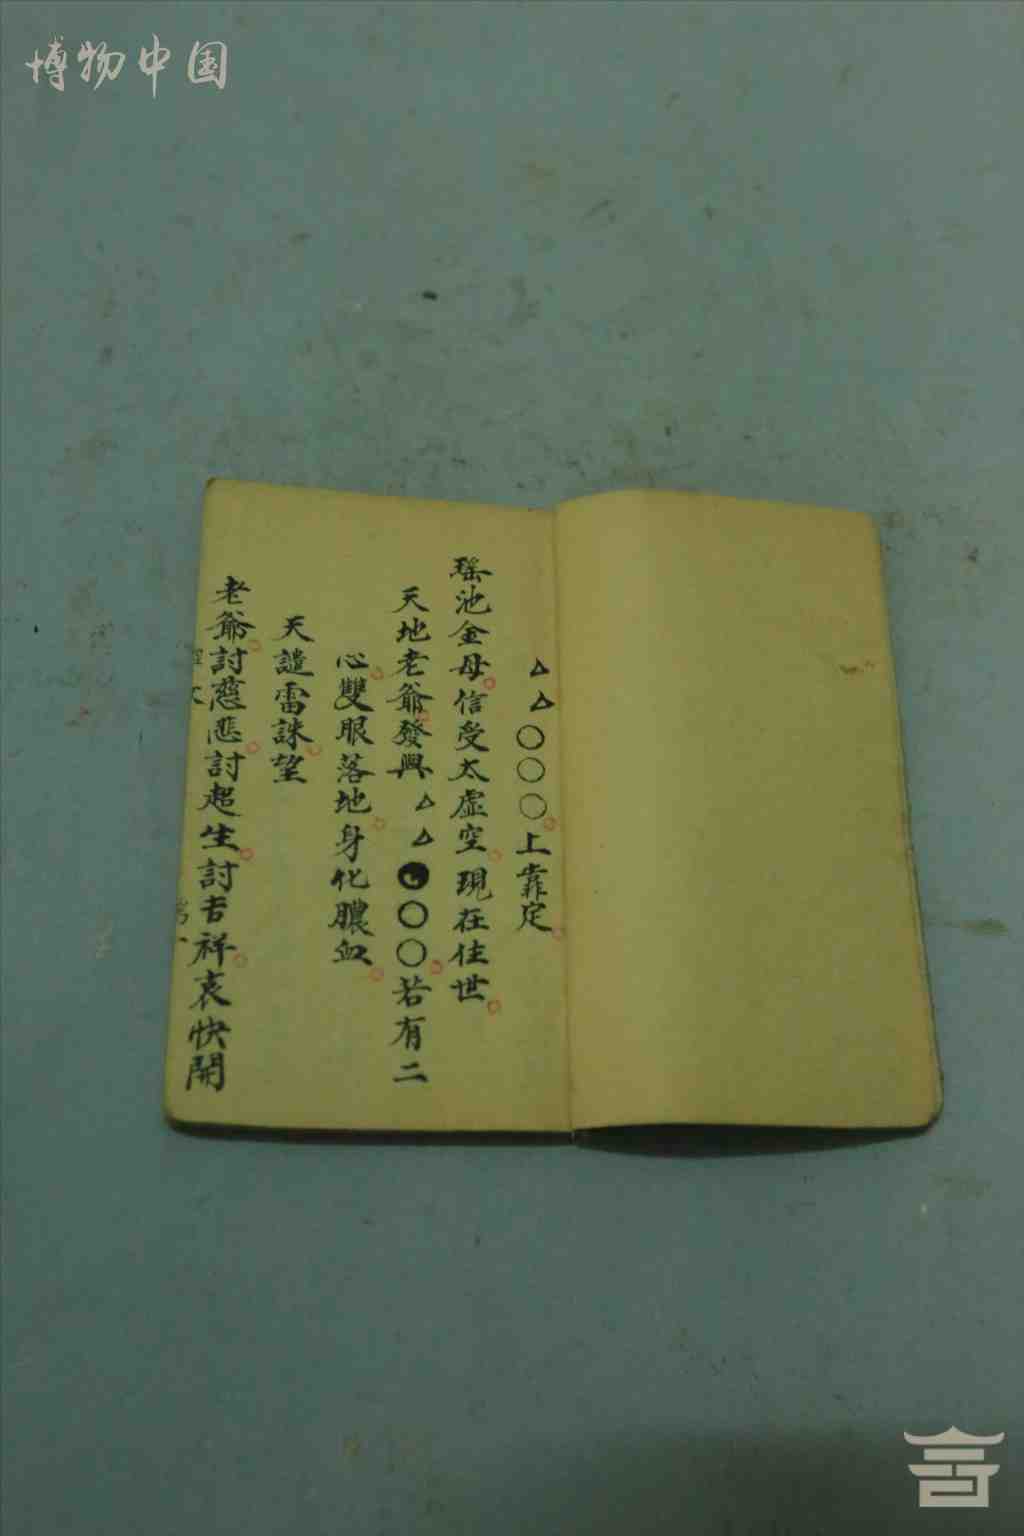 博物中国
△△○○○。上靠定。
瑶池金母。信受太虛空。現在住世。
天地老爺。發興△△☯○○。若有二
心。雙眼落地。身化膿血。
天譴雷誅。望
老爺。討慈悲。討超生。討吉祥。衷快開